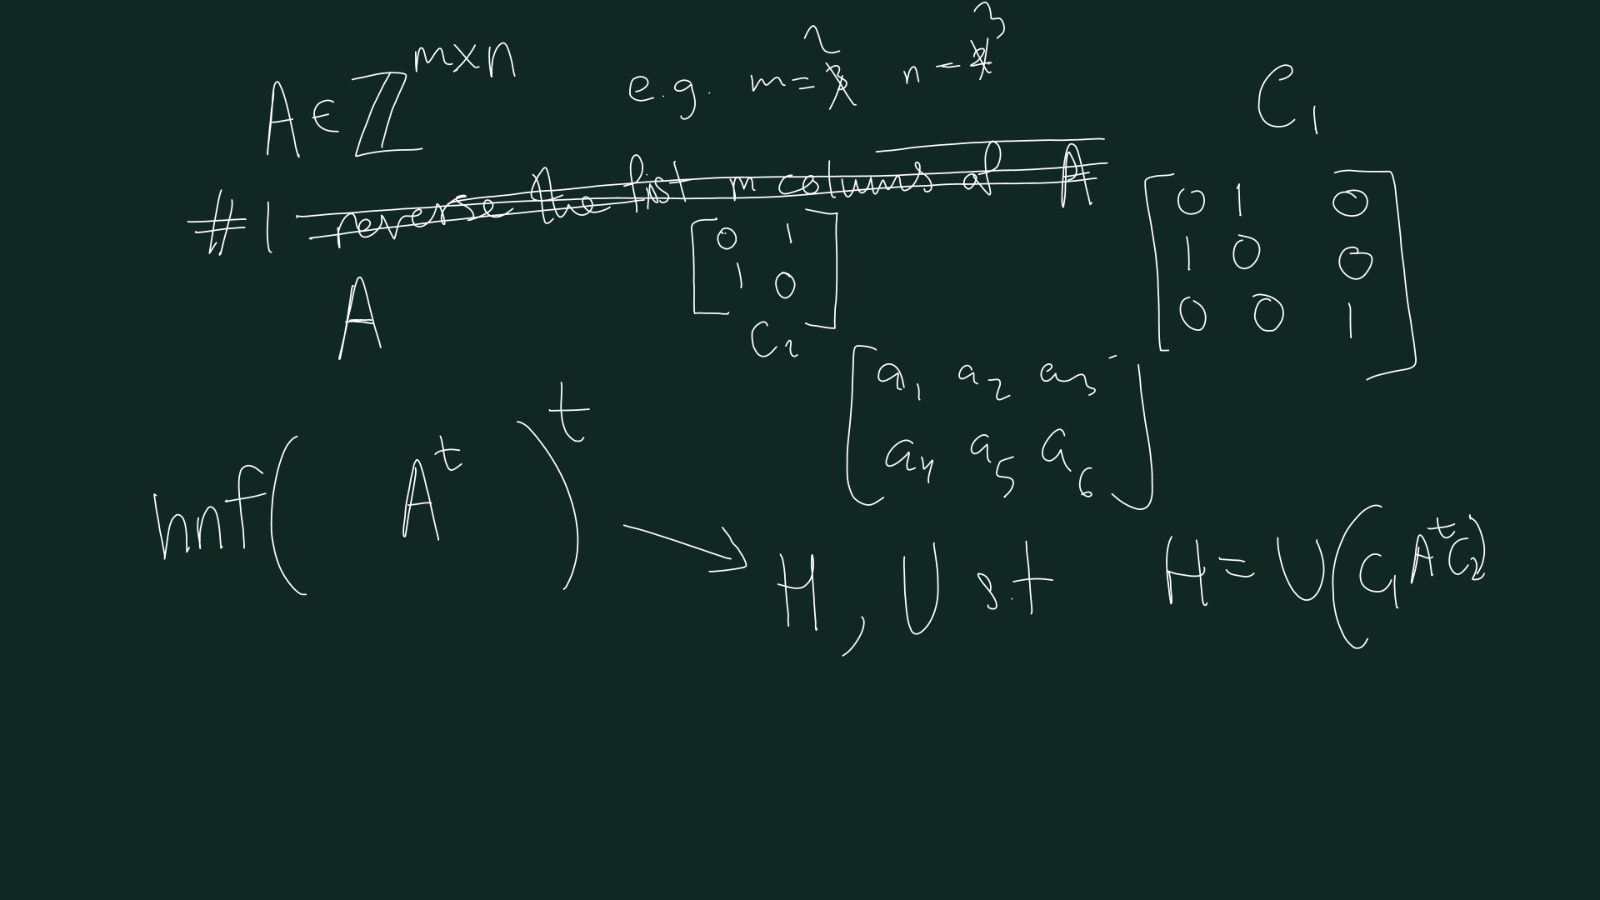 A ∈ ℤ^{m×n} e.g. m = 2 n = 3
C₁
#1 reverse the first m columns of A
[0 1; 1 0]
C₂
[0 1 0; 1 0 0; 0 0 1]
A
[a₁ a₂ a₃; a₄ a₅ a₆]
hnf( A^t )^t → H, U s.t H = U(C₁ A^t C₂)